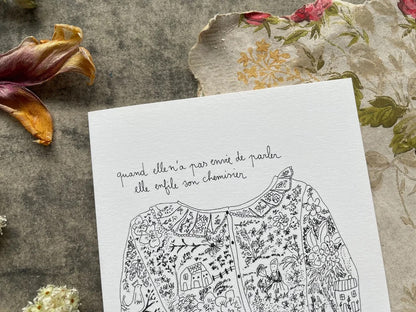 quand elle n'a pas envie de parler
elle enfile son chemisier